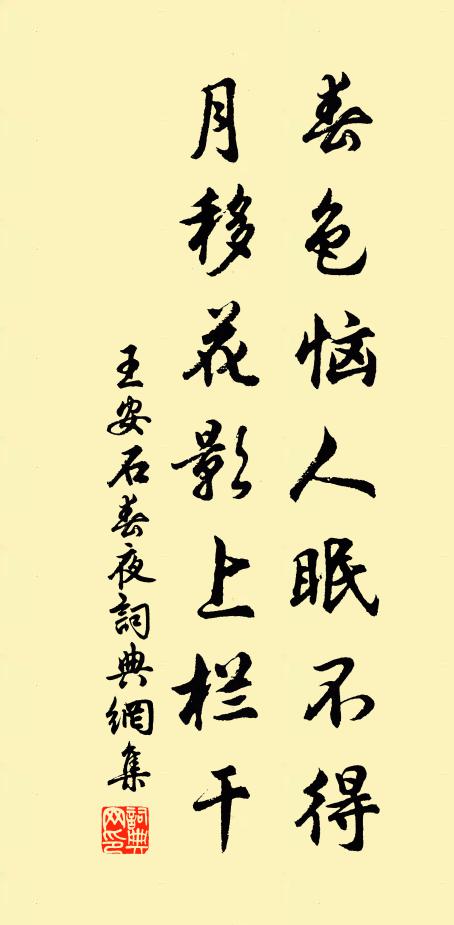 春色恼人眠不得
月移花影上栏干
王安石春夜詞典網集
詞典
网印